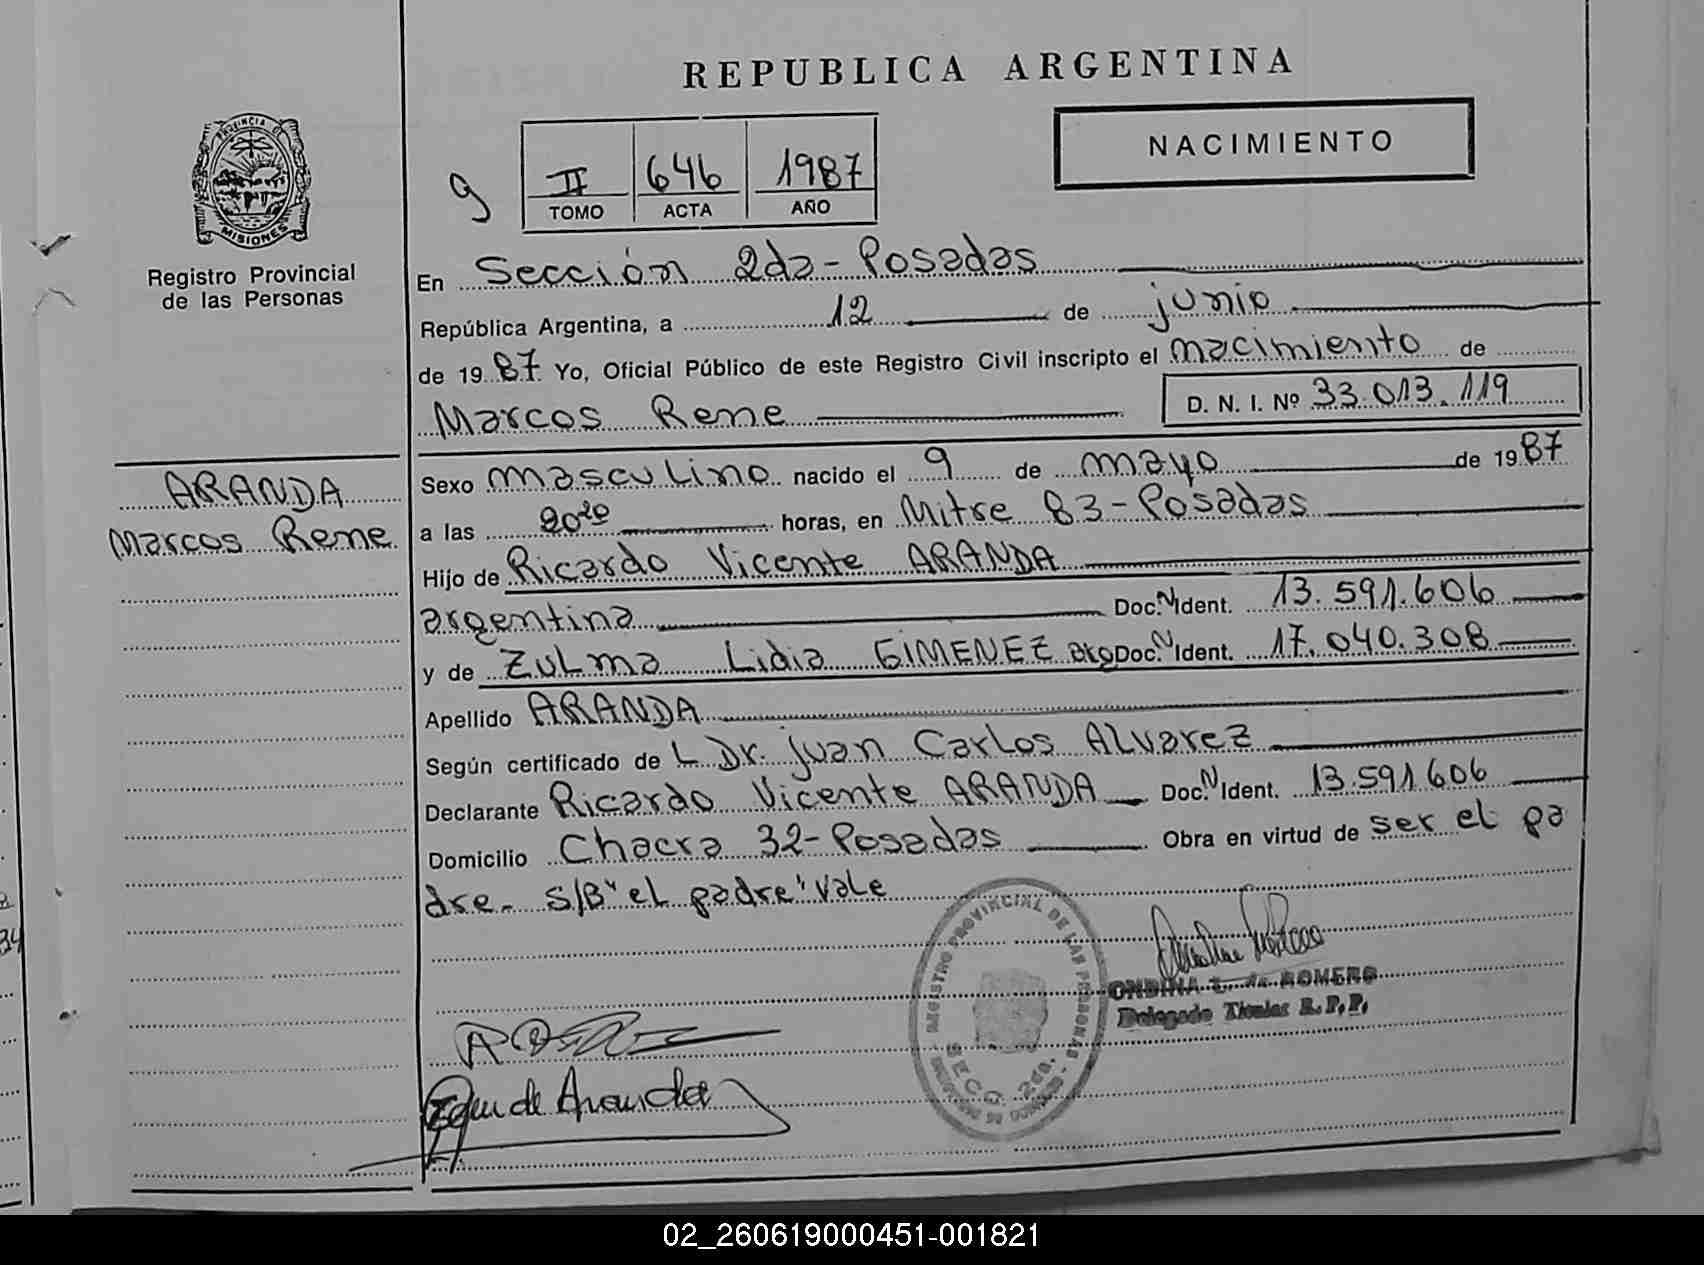 REPUBLICA ARGENTINA
NACIMIENTO
PROVINCIA DE
MISIONES
Registro Provincial
de las Personas
9
II 646 1987
TOMO ACTA AÑO
En Sección 2da - Posadas
República Argentina, a 12 de junio
de 1987 Yo, Oficial Público de este Registro Civil inscripto el nacimiento de
Marcos Rene D. N. I. Nº 33.013.119
ARANDA
Marcos Rene
Sexo masculino nacido el 9 de mayo de 1987
a las 20²⁰ horas, en Mitre 83 - Posadas
Hijo de Ricardo Vicente ARANDA
argentina Doc. N Ident. 13.591.606
y de Zulma Lidia GIMENEZ arg Doc. N Ident. 17.040.308
Apellido ARANDA
Según certificado de L Dr. Juan Carlos Alvarez
Declarante Ricardo Vicente ARANDA Doc. N Ident. 13.591.606
Domicilio Chacra 32 - Posadas Obra en virtud de ser el pa
dre. S/B "el padre" vale
REGISTRO PROVINCIAL DE LAS PERSONAS
SECC. 2da.
ONDINA L. de ROMERO
Delegado Titular R.P.P.
de Aranda
02_260619000451-001821